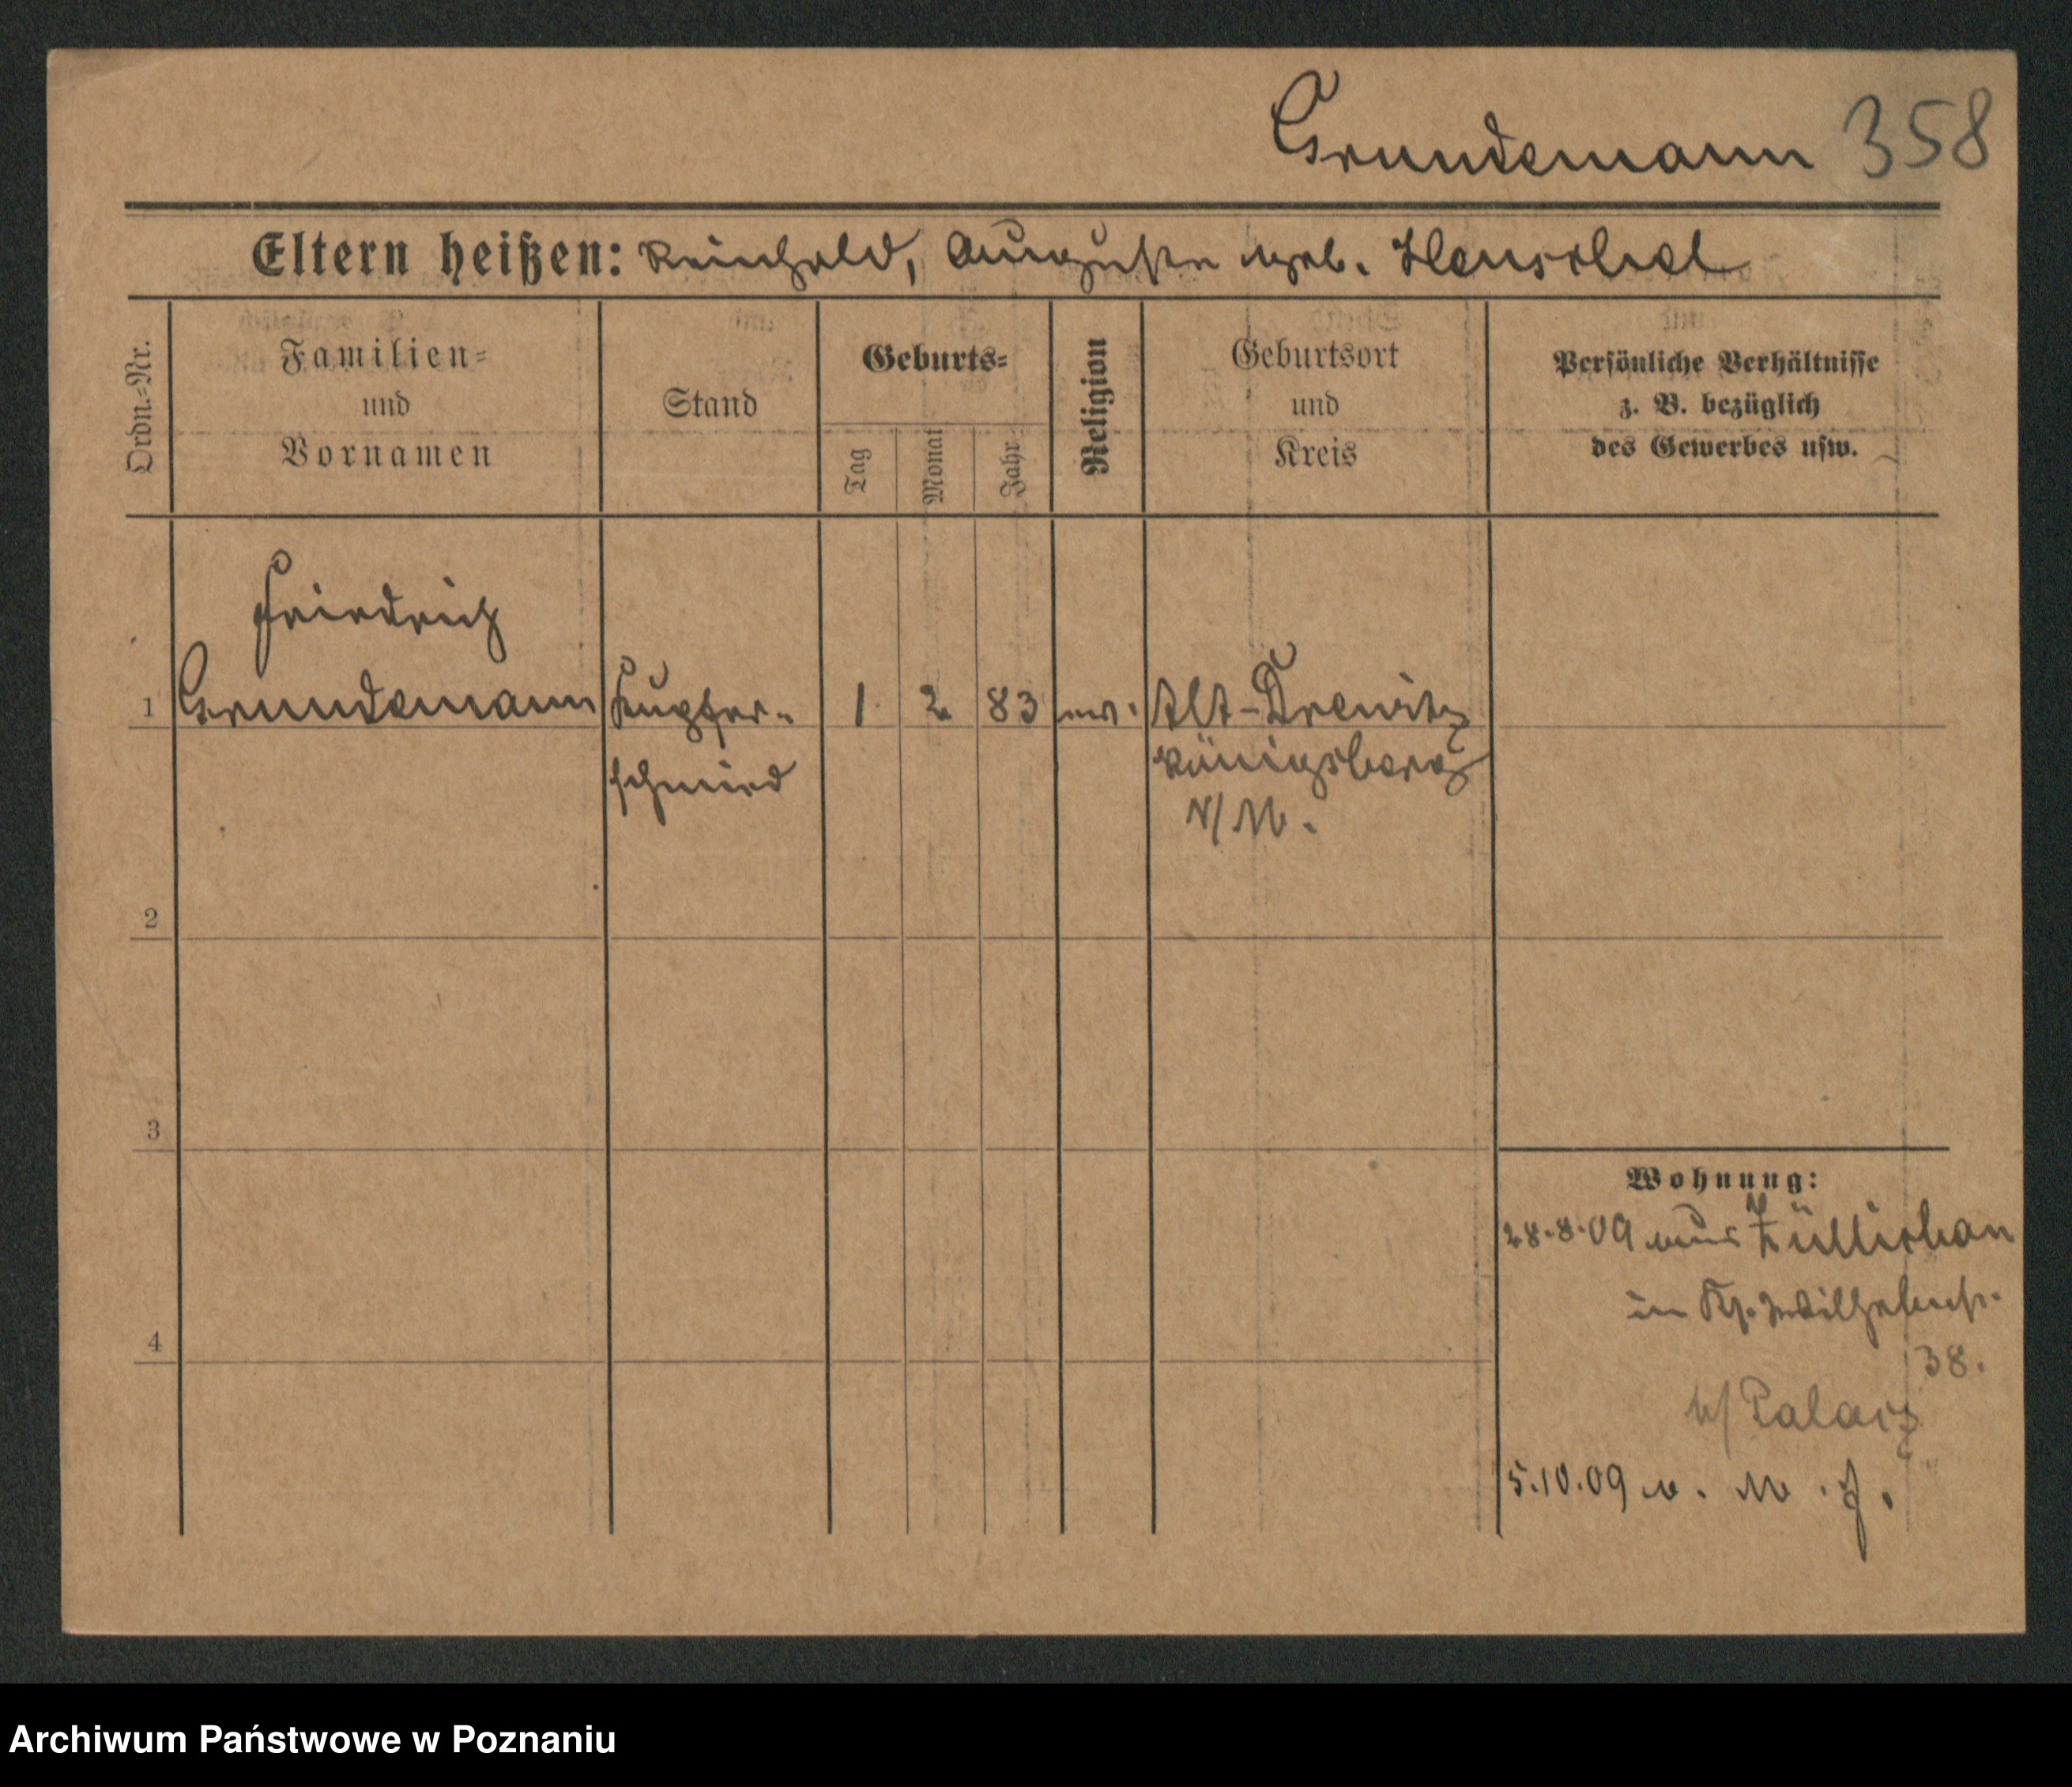 Grundemann 358
Eltern heißen: Reinhold, Auguste geb. Henschel
Ordn.=Nr.
Familien=
und
Vornamen
Stand
Geburts=
Tag
Monat
Jahr
Religion
Geburtsort
und
Kreis
Persönliche Verhältnisse
z. B. bezüglich
des Gewerbes usw.
Friedrich
1 Grundemann Kupfer- 1 2 83 ev. Alt-Drewitz
schmied Königsberg
N/M.
2
3
4
Wohnung:
28.8.09 aus Züllichau
in Kl. Wilhelmst.
38.
b/ Palacz
5.10.09 n. M. J.
Archiwum Państwowe w Poznaniu